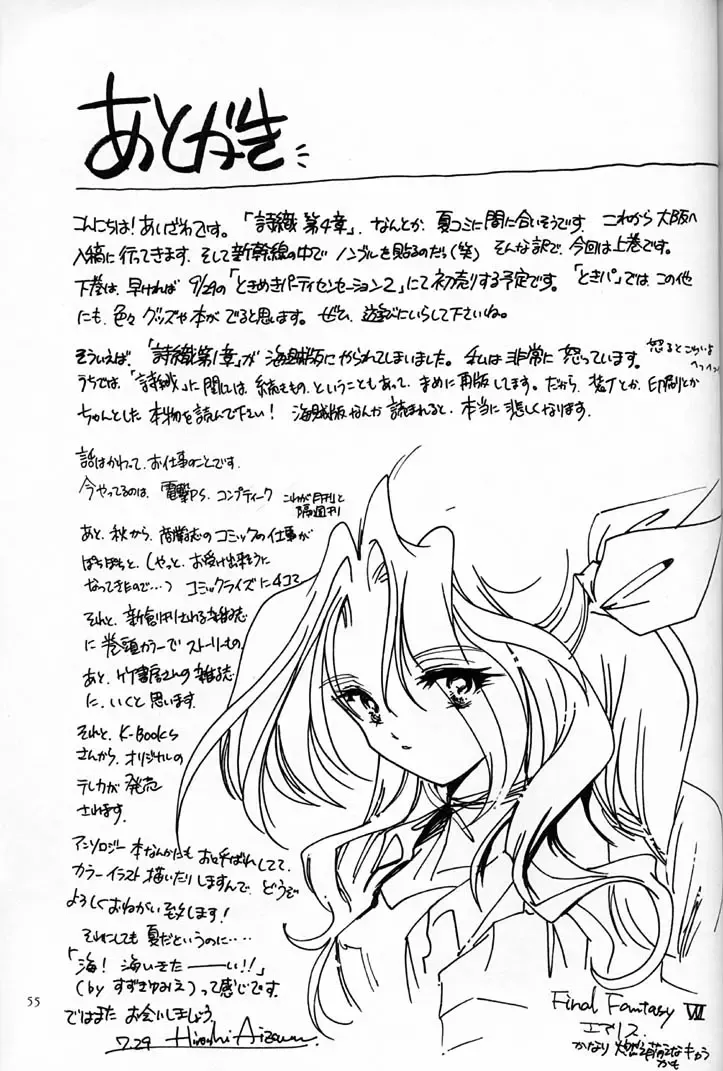 あとがき
こんにちは!あいざわです。「詩織 第4章」、なんとか、夏コミに間に合いそうです。これから大阪へ
入稿に行ってきます。そして新幹線の中でノンブルを貼るのだら(笑) そんな訳で、今回は上巻です。
下巻は、早ければ 9/29の「ときめきパーティセンセーション2」にて初売りする予定です。「ときパ」では、この他
にも、色々グッズや本がでると思います。ぜひ、遊びにいらして下さいね。
そういえば、「詩織第1章」が海賊版にやられてしまいました。私は非常に怒っています。
怒るとこわいよ
へっへっ
うちでは、「詩織」に関しては、続きもの、ということもあって、まめに再版します。だから、装丁とか、印刷とか
ちゃんとした本物を読んで下さい! 海賊版なんか読まれると、本当に悲しくなります。
話はかわって、お仕事のことです。
今やってるのは、電撃PS、コンプティーク
これが月刊と
隔週刊
あと、秋から、商業誌のコミックの仕事が
ぽちぽちと、(やっと、お受け出来そうに
なってきたので…) コミックライズに4コマ
それと、新創刊される雑誌
に巻頭カラーでストーリーもの。
あと、竹書房さんの雑誌
に、いくと思います。
それと、K-Books
さんから、オリジナルの
テレカが発売
されます。
アンソロジー本なんかにもお呼ばれしてて、
カラーイラスト描いたりしますんで、どうぞ
よろしくおねがい致します!
それにしても夏だというのに‥‥
「海! 海いきたーーい!!」
(by すずきゆみえ) って感じです。
ではまたお会いしましょう。
7.29 Hiroshi Aizawa.
Final Fantasy VII
エアリス.
かなり 萌えなキャラ
かも
55